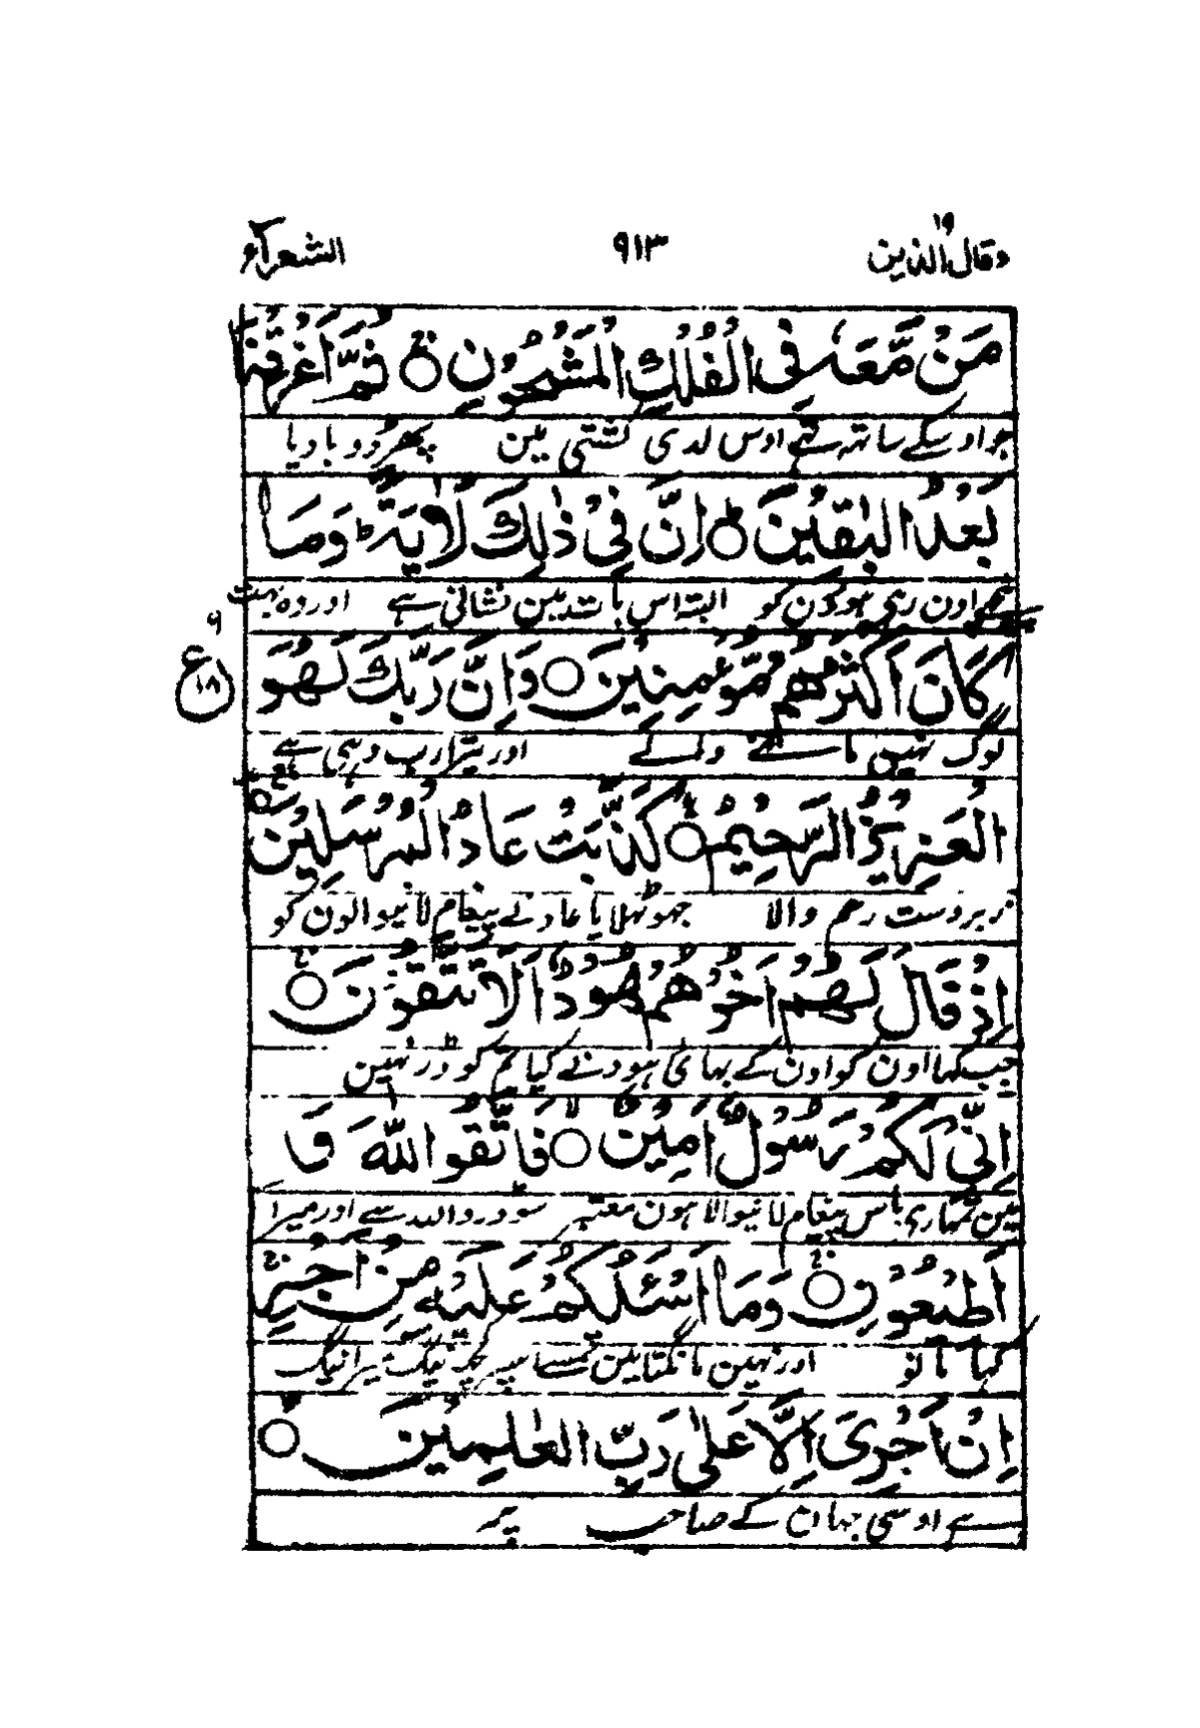 وقال الذین ۱۹ ۹۱۳ الشعراء ۲۶
مَنْ مَّعَهٗ فِی الْفُلْكِ الْمَشْحُوْنِ ○ ثُمَّ اَغْرَقْنَا
جو اوسکے ساتہہ تہے اوس لدی کشتی مین پھر ڈوبا دیا
بَعْدُ الْبٰقِیْنَ ○ اِنَّ فِیْ ذٰلِكَ لَاٰیَةً ؕ وَمَا
پیچھے اون رہی ہوؤن کو البتہ اس بات مین نشانی ہے اور وہ بہت
كَانَ اَكْثَرُهُمْ مُّؤْمِنِیْنَ ○ وَاِنَّ رَبَّكَ لَهُوَ
ع ۱۸ ۶
لوگ نہین ماننے والے اور تیرا رب وہی ہے
الْعَزِیْزُ الرَّحِیْمُ ○ كَذَّبَتْ عَادُ ِۨالْمُرْسَلِیْنَ ○
زبردست رحم والا جہوٹہلایا عاد نے پیغام لانیوالون کو
اِذْ قَالَ لَهُمْ اَخُوْهُمْ هُوْدٌ اَلَا تَتَّقُوْنَ ○
جب کہا اون کو اون کے بہائی ہود نے کیا تم کو ڈر نہین
اِنِّیْ لَكُمْ رَسُوْلٌ اَمِیْنٌ ○ فَاتَّقُوا اللّٰهَ وَ
مین تمہاری پاس پیغام لانیوالا ہون معتبر سو ڈرو اللہ سے اور میرا
اَطِیْعُوْنِ ○ وَمَاۤ اَسْـَٔلُكُمْ عَلَیْهِ مِنْ اَجْرٍ
کہا مانو اور نہین مانگتا مین تمسے اسپر کچہ نیگ میرا نیگ
اِنْ اَجْرِیَ اِلَّا عَلٰی رَبِّ الْعٰلَمِیْنَ ○
ہے اوسی جہان کے صاحب پر